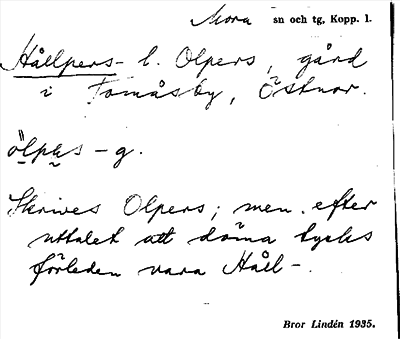 Mora sn och tg, Kopp. l.
Hållpers- l. Olpers, gård
i Tomåsby, Östnor.
ölpes - g.
Skrives Olpers; men efter
uttalet att döma tycks
förleden vara Håll-.
Bror Lindén 1935.